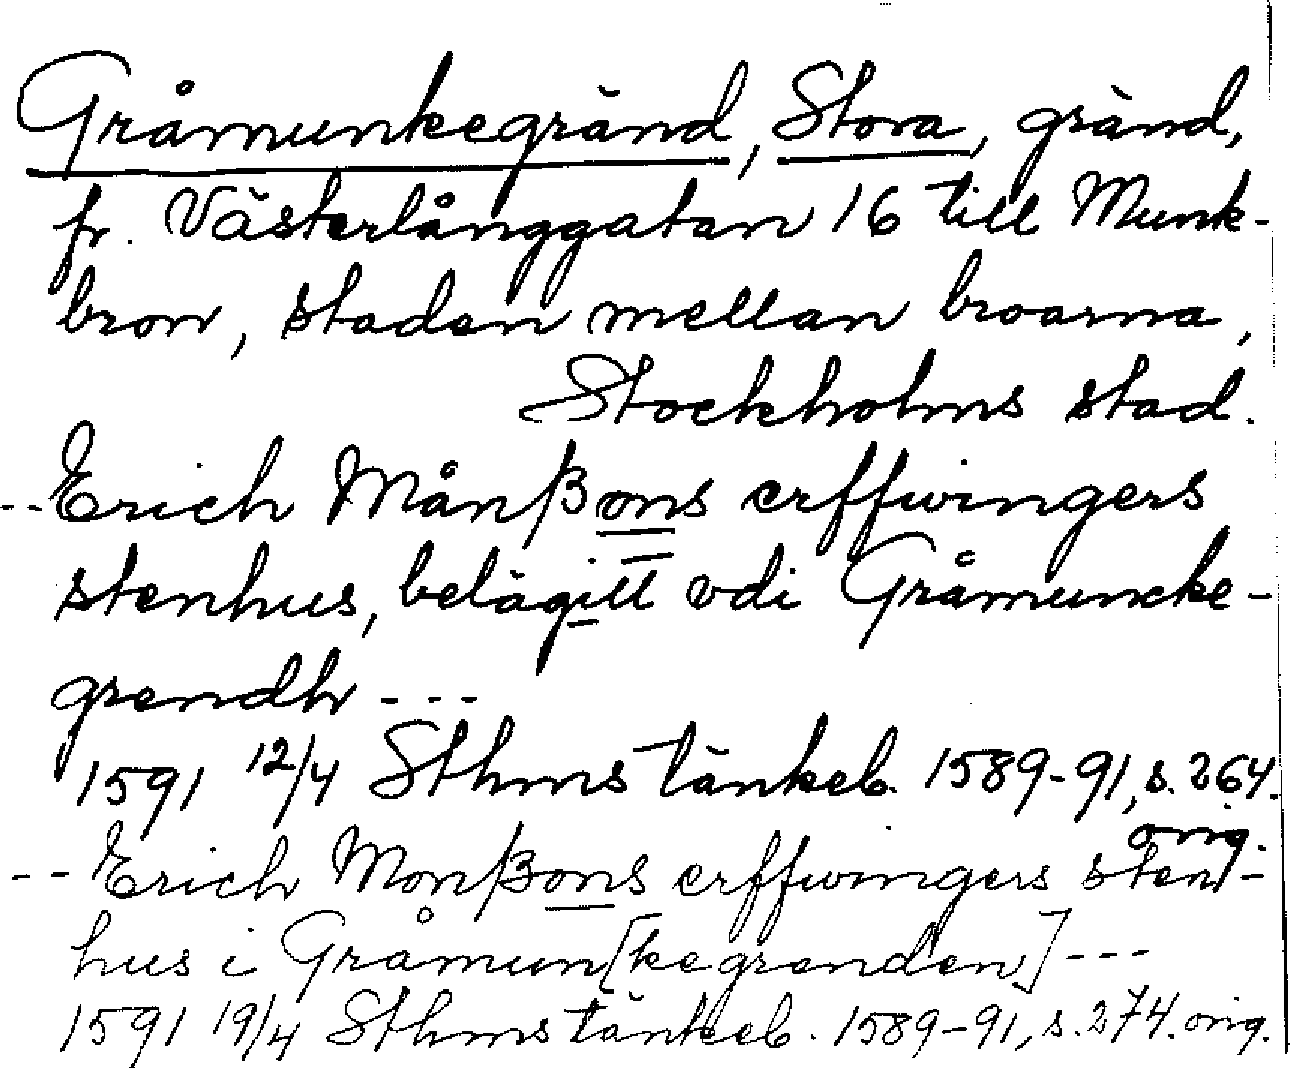 Gråmunkegränd, Stora, gränd,
fr. Västerlånggatan 16 till Munk-
bron, staden mellan broarna,
Stockholms stad.
--Erich Månßons erffwingers
stenhus, belägitt vdi Gråmuncke-
grendh ---
1591 12/4 Sthms tänkeb. 1589-91, s. 264.
orig.
--Erich Monßons erffwingers sten-
hus i Gråmun[kegrenden]---
1591 19/4 Sthms tänkeb. 1589-91, s. 274. orig.